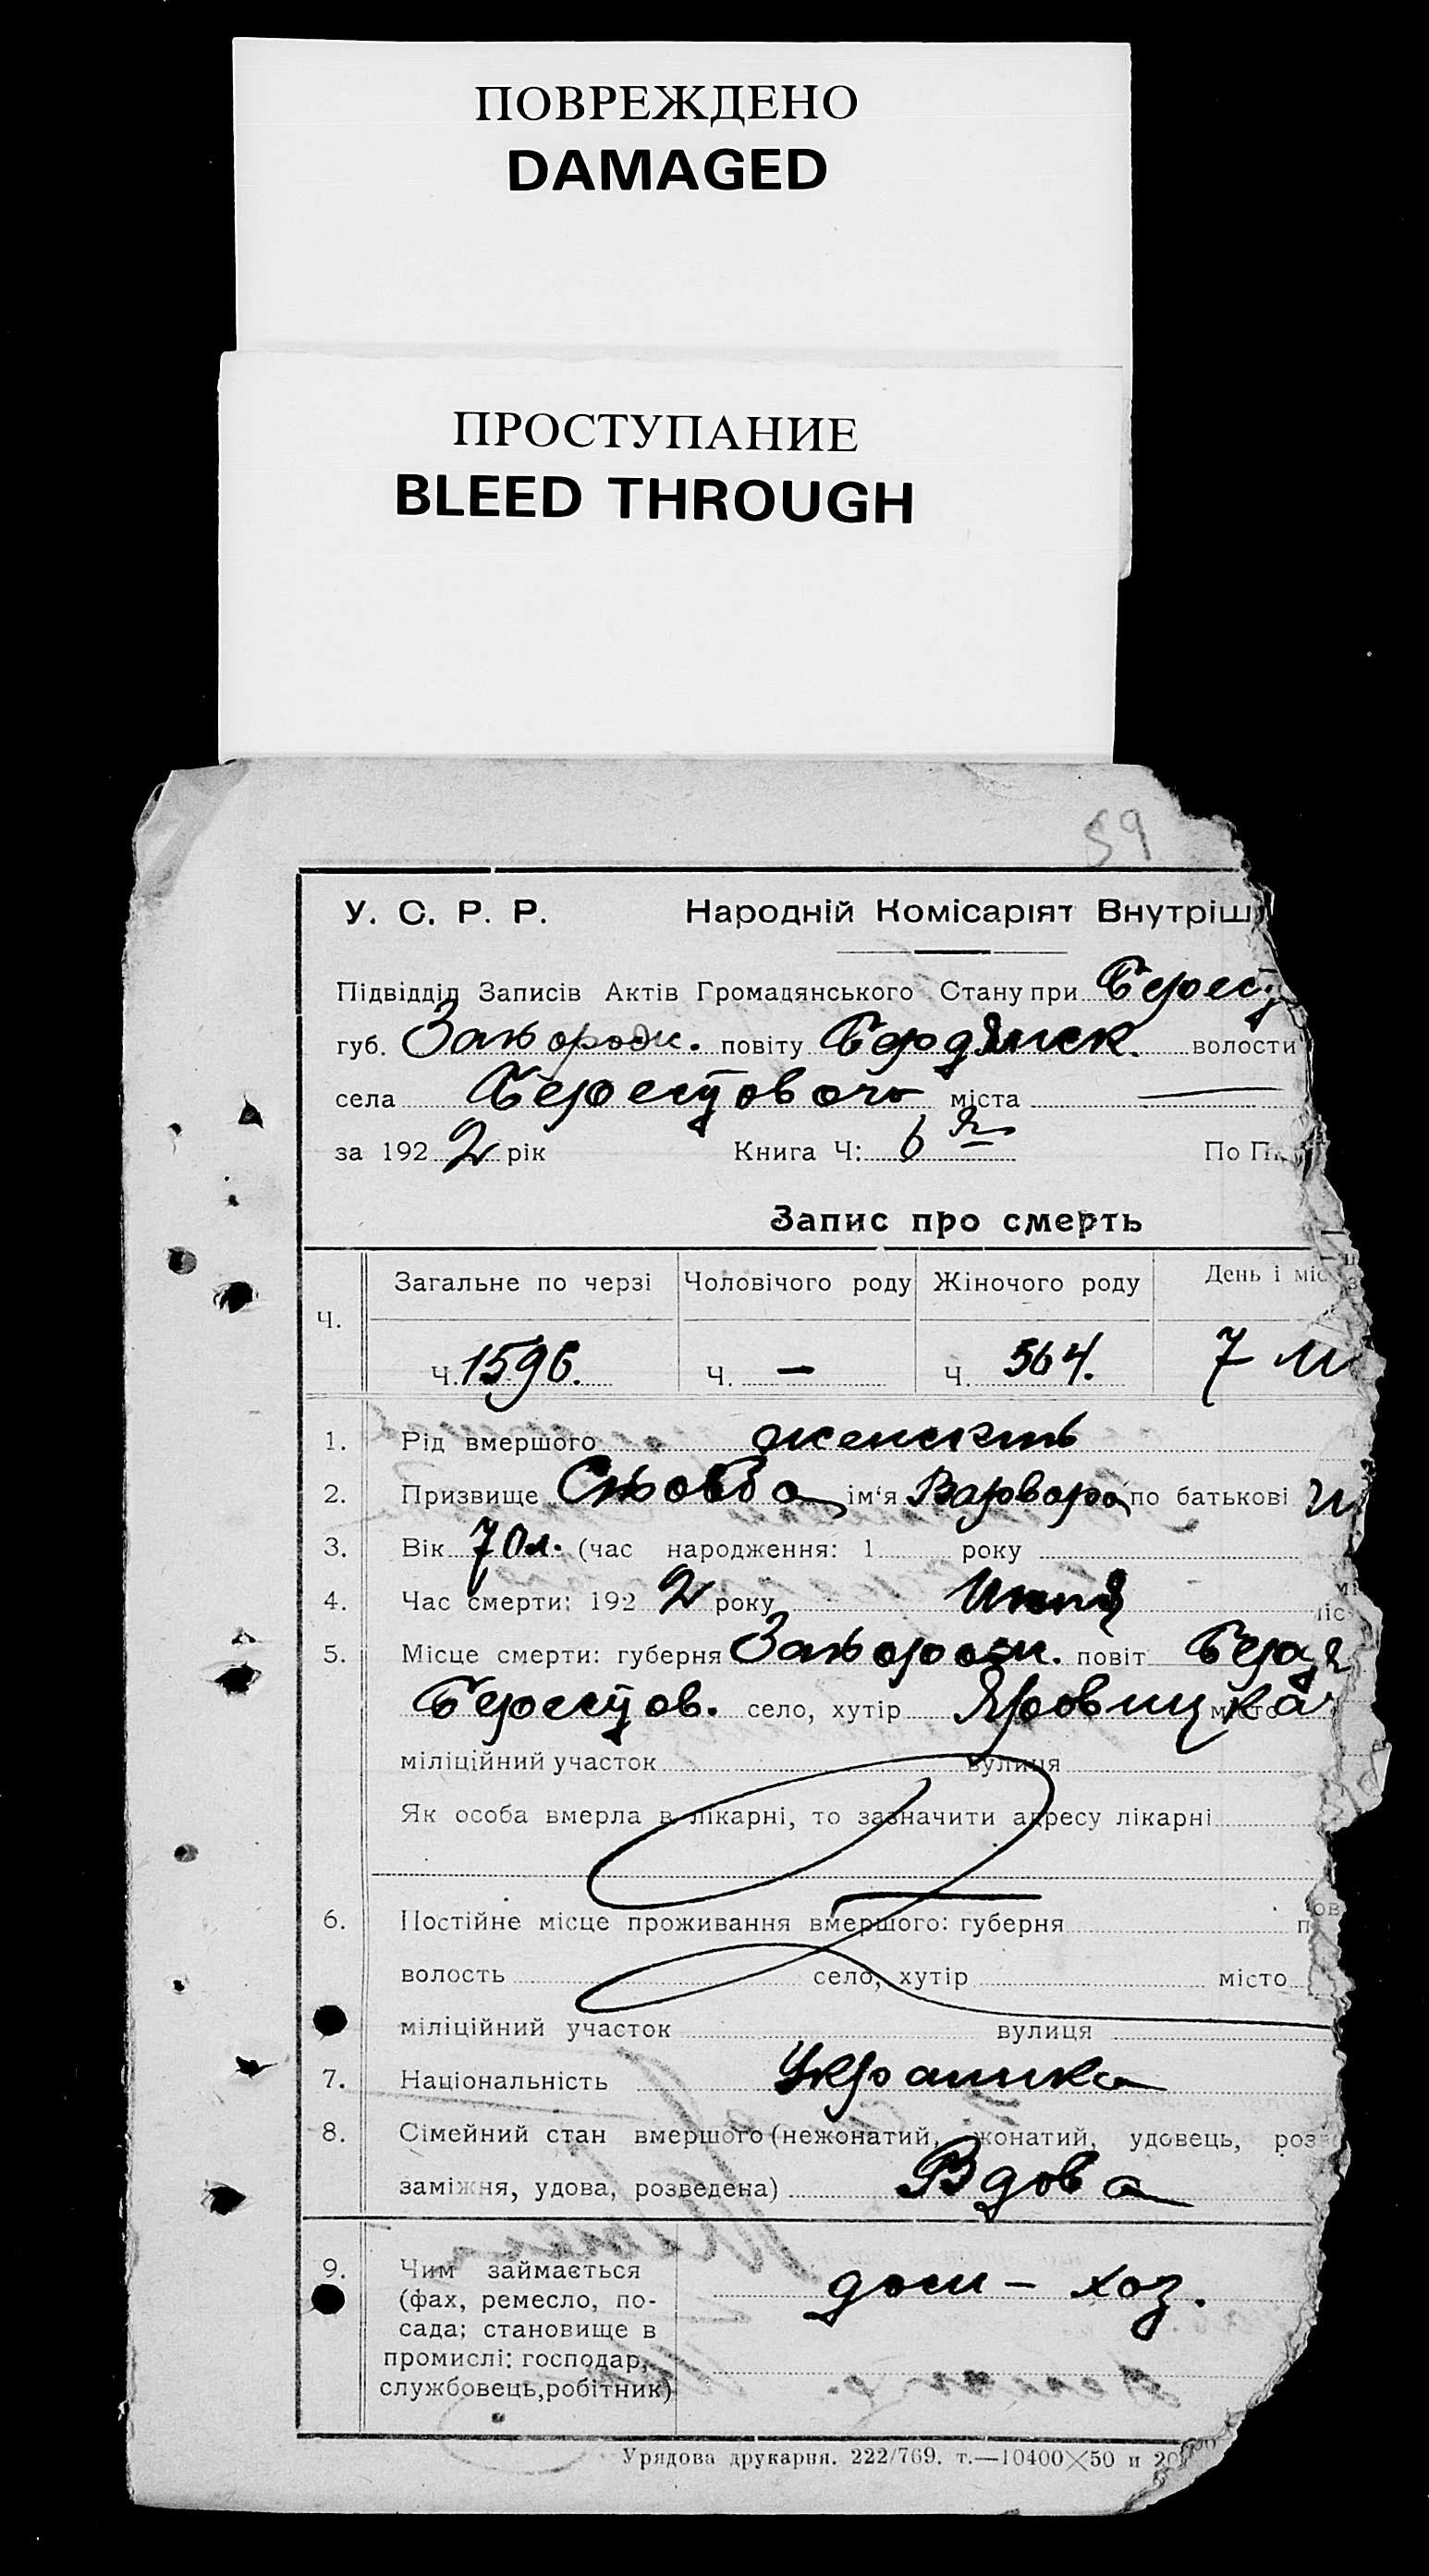 ПОВРЕЖДЕНО
DAMAGED
ПРОСТУПАНИЕ
BLEED THROUGH
59
У. С. Р. Р. Народній Комісаріят Внутріш
Підвідділ Записів Актів Громадянського Стану при Берест
губ. повіту Бердянск. волости
села Берестовочь міста —
за 1922 рік Книга Ч: 6 я По
Запис про смерть
Ч. Загальне по черзі Чоловічого роду Жіночого роду День і міс
Ч. 1596. Ч. — Ч. 564. 7
1. Рід вмершого
2. Призвище ім‘я Варвара по батькові
3. Вік 70 л. (час народження: 1 року
4. Час смерти: 1922 року
5. Місце смерти: губерня повіт Бердя
Берестов. село, хутір місто
міліційний участок вулиця
Як особа вмерла в лікарні, то зазначити адресу лікарні
6. Постійне місце проживання вмершого: губерня п
волость село, хутір місто
міліційний участок вулиця
7. Національність Украинка
8. Сімейний стан вмершого (нежонатий, жонатий, удовець, розв
заміжня, удова, розведена) Вдова
9. Чим займається дом – хоз.
(фах, ремесло, по-
сада; становище в
промислі: господар,
службовець,робітник)
Урядова друкарня. 222/769. т.—10400×50 и 20